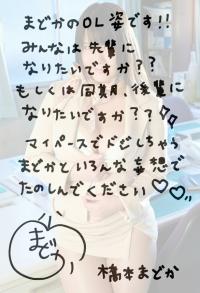 まどかのOL姿です!!
みんなは先輩に
なりたいですか??
もしくは同期、後輩に
なりたいですか??
マイペースでドジしちゃう
まどかといろんな妄想で
たのしんでください♡♡
まどか
橋本まどか